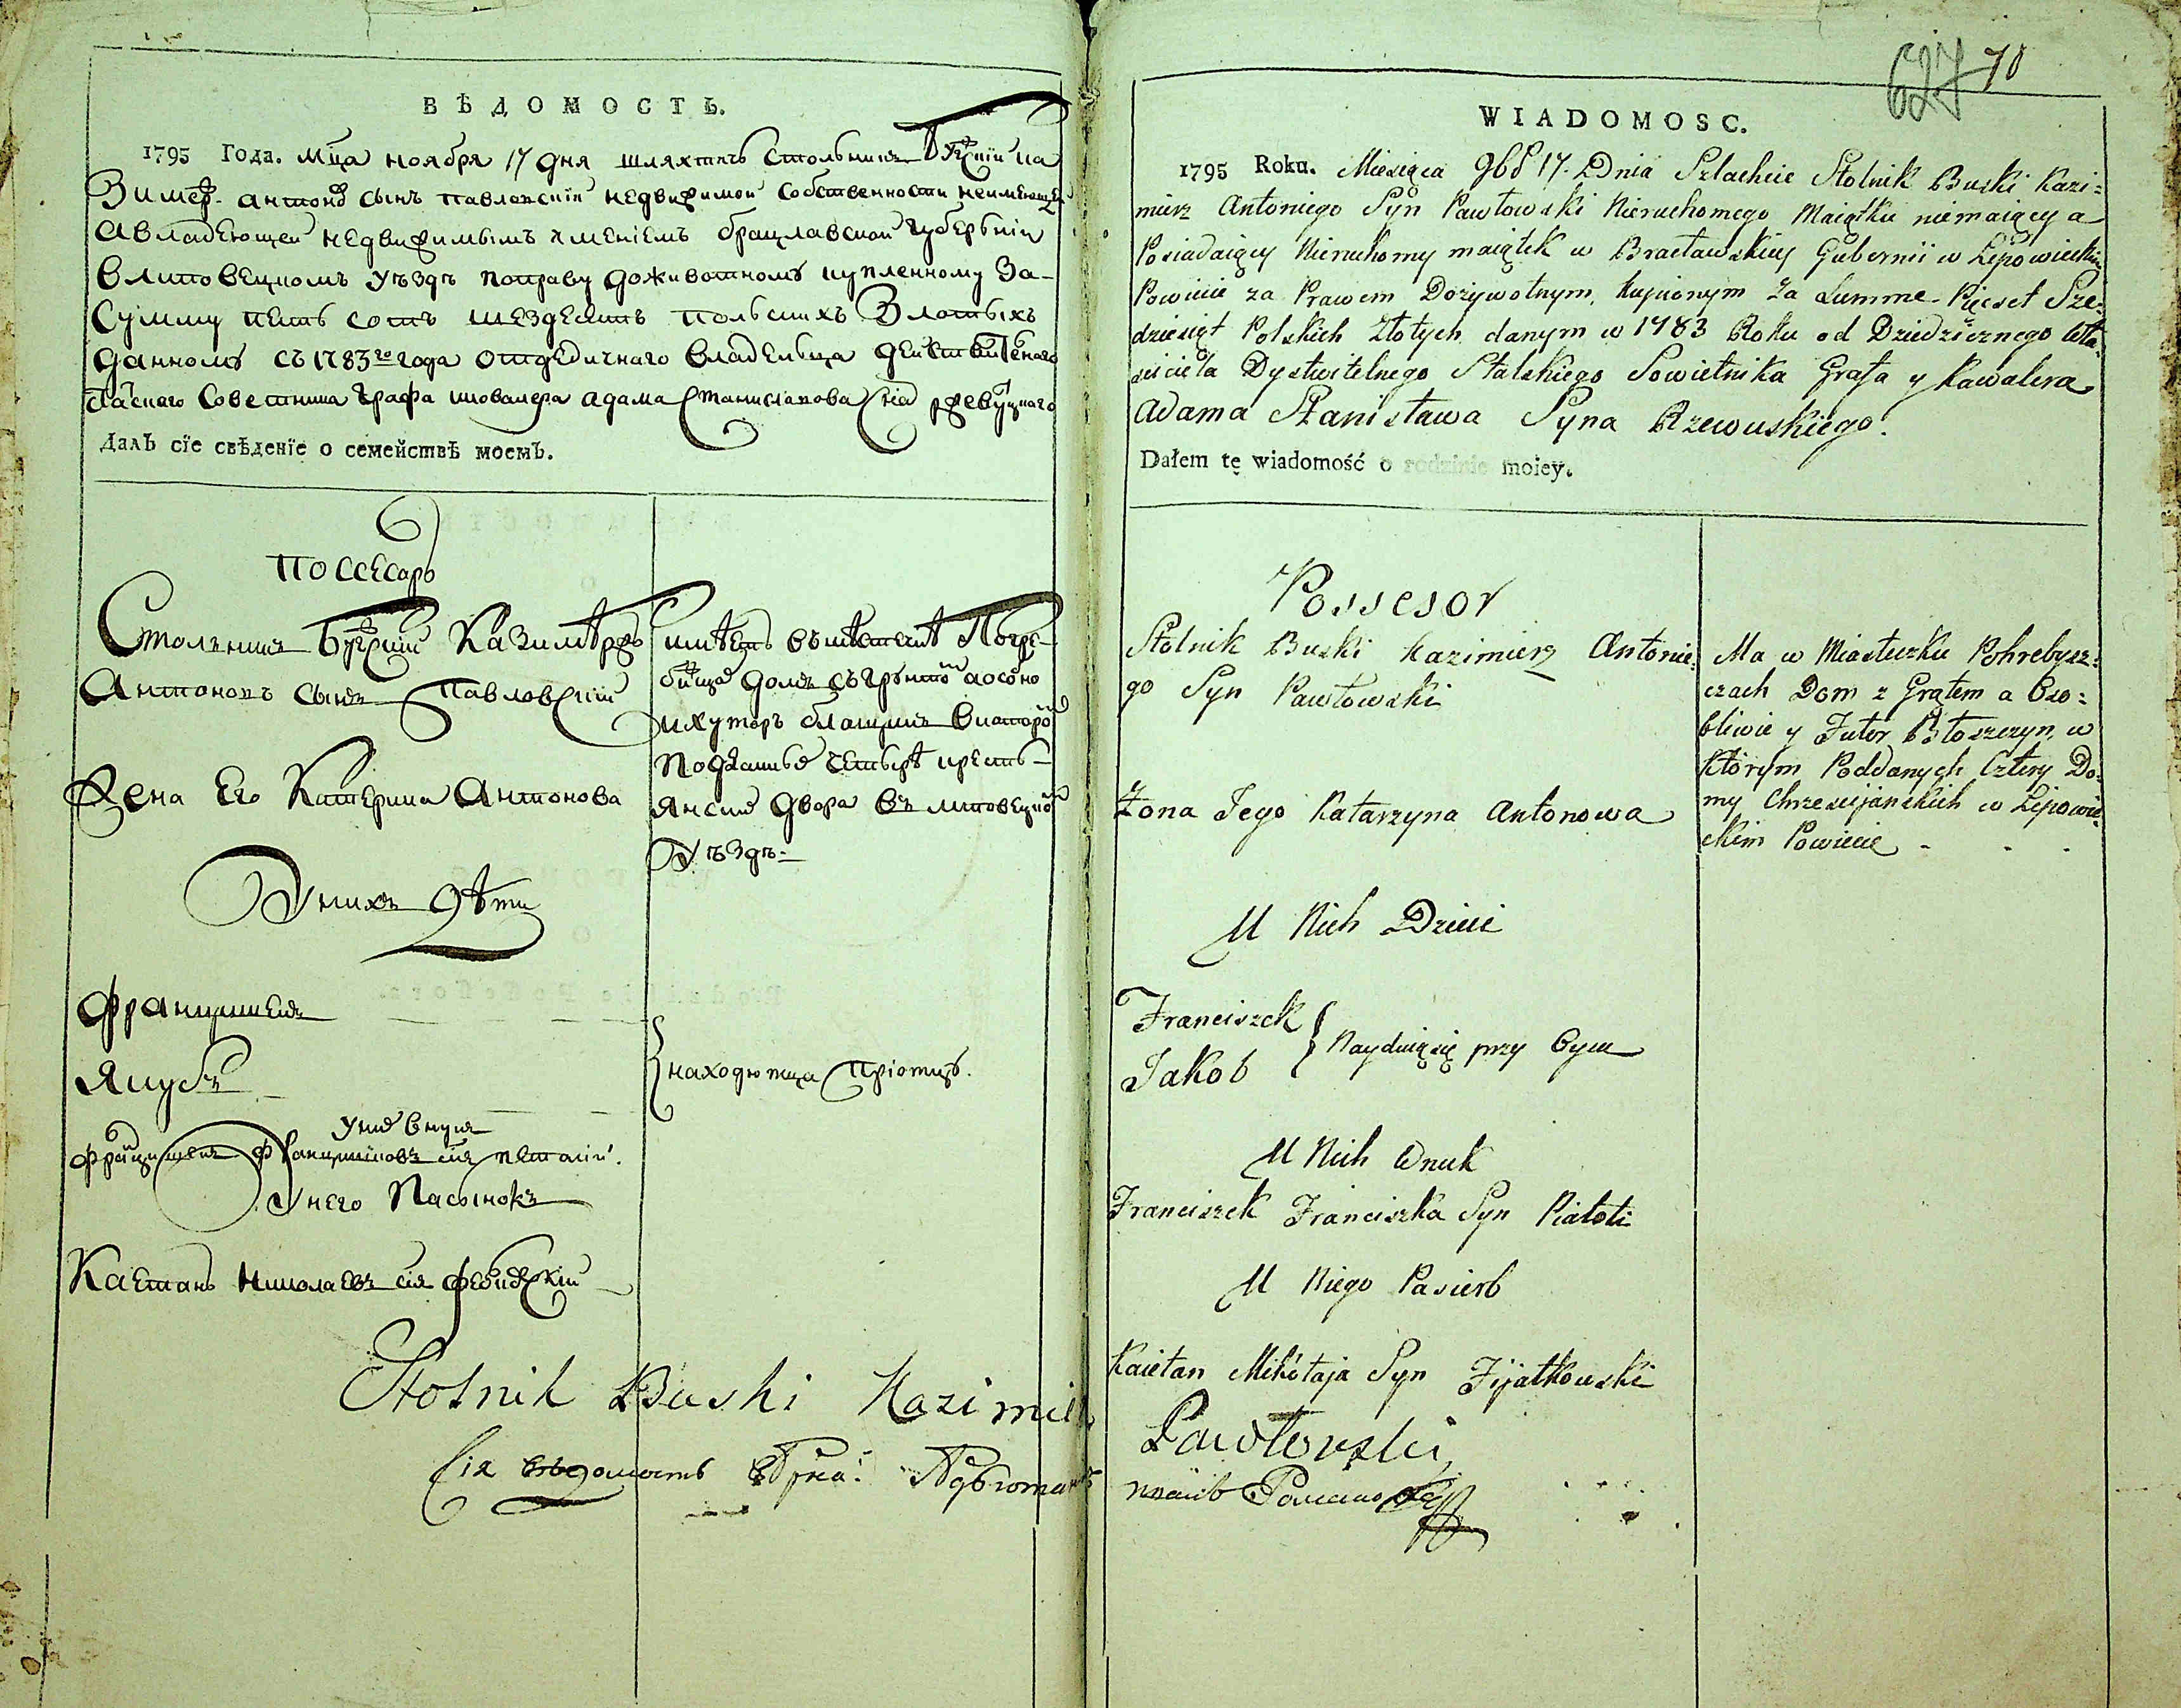 ВѢДОМОСТЬ.
1795 Года. мца ноября 17 дня шляхтичъ столникъ Бускїи Ка
Зимер. антоновъ сынъ павловскїи недвижимои собственности неимеющеи
авладеющеи недвижимымъ имениемъ брацлавскои губернїи
влиповецкомъ уѣздѣ поправу доживотномъ купленному За-
Сумму пять сотъ шездесятъ польскихъ Злотыхъ
данномъ съ 1783го года отдедичнаго владельца действителнаго
статскаго Советника графа икавалера адама Станиславова сна ржевускаго
далъ сїе свѣденїе о семействѣ моемъ.
поссесаръ
Столникъ Бускїи Казимѣръ
Антоновъ сынъ Павловскїи
Жена Его Катерина Антонова
Унихъ дѣти
Францишекъ
Якубъ
Уние внукъ
Францишекъ Францишковъ снъ
Унего Пасынокъ
Каетанъ Николаевъ снъ
имѣетъ въместечкѣ Погре-
бища домъ съгрунтом аособно
ихуторъ блащинъ вкотором
Подданые четырѣ кресть-
янские двора въ липовецком
Уѣздѣ
находютца приотцѣ.
Stolnik Buski Kazimierz
Сiя ведомость
627 70
WIADOMOSC.
1795 Roku. Miesiąca 9bŕ 17. Dnia Szlachcic Stolnik Buski Kazi:
mierz Antoniego Syn Pawłowski Nieruchomego Maiątku niemaiący a
Posiadaiący Nieruchomy maiątek w Bracławskiey Gubernii w Lipowieckim
Powiecie za Prawem Dożywotnym, kupionym za Summe Pięset Sze:
dziesiąt Polskich Złotych danym w 1783 Roku od Dziedzicznego Wła
sciciela Dystwitelnego Statskiego Sowietnika Grafa y Kawalera
Adama Stanisława Syna Rzewuskiego.
Dałem tę wiadomość o rodzinie moiey.
Possesor
Stolnik Buski Kazimierz Antonie:
go Syn Pawłowski
Żona Jego Katarzyna Antonowa
U Nich Dzieci
Franciszek
Jakob
Nayduią się przy Oycu
U Nich Wnuk
Franciszek Franciszka Syn
U Niego Pasierb
Kaietan Mikołaja Syn Fijałkowski
Ma w Miasteczku Pohrebysz:
czach Dom z Grątem a Oso:
bliwie y Futor Błoszczyn, w
Którym Poddanych Cztery Do:
my Chrzescijanskich w Lipowie
ckim Powiecie
Pawłowski